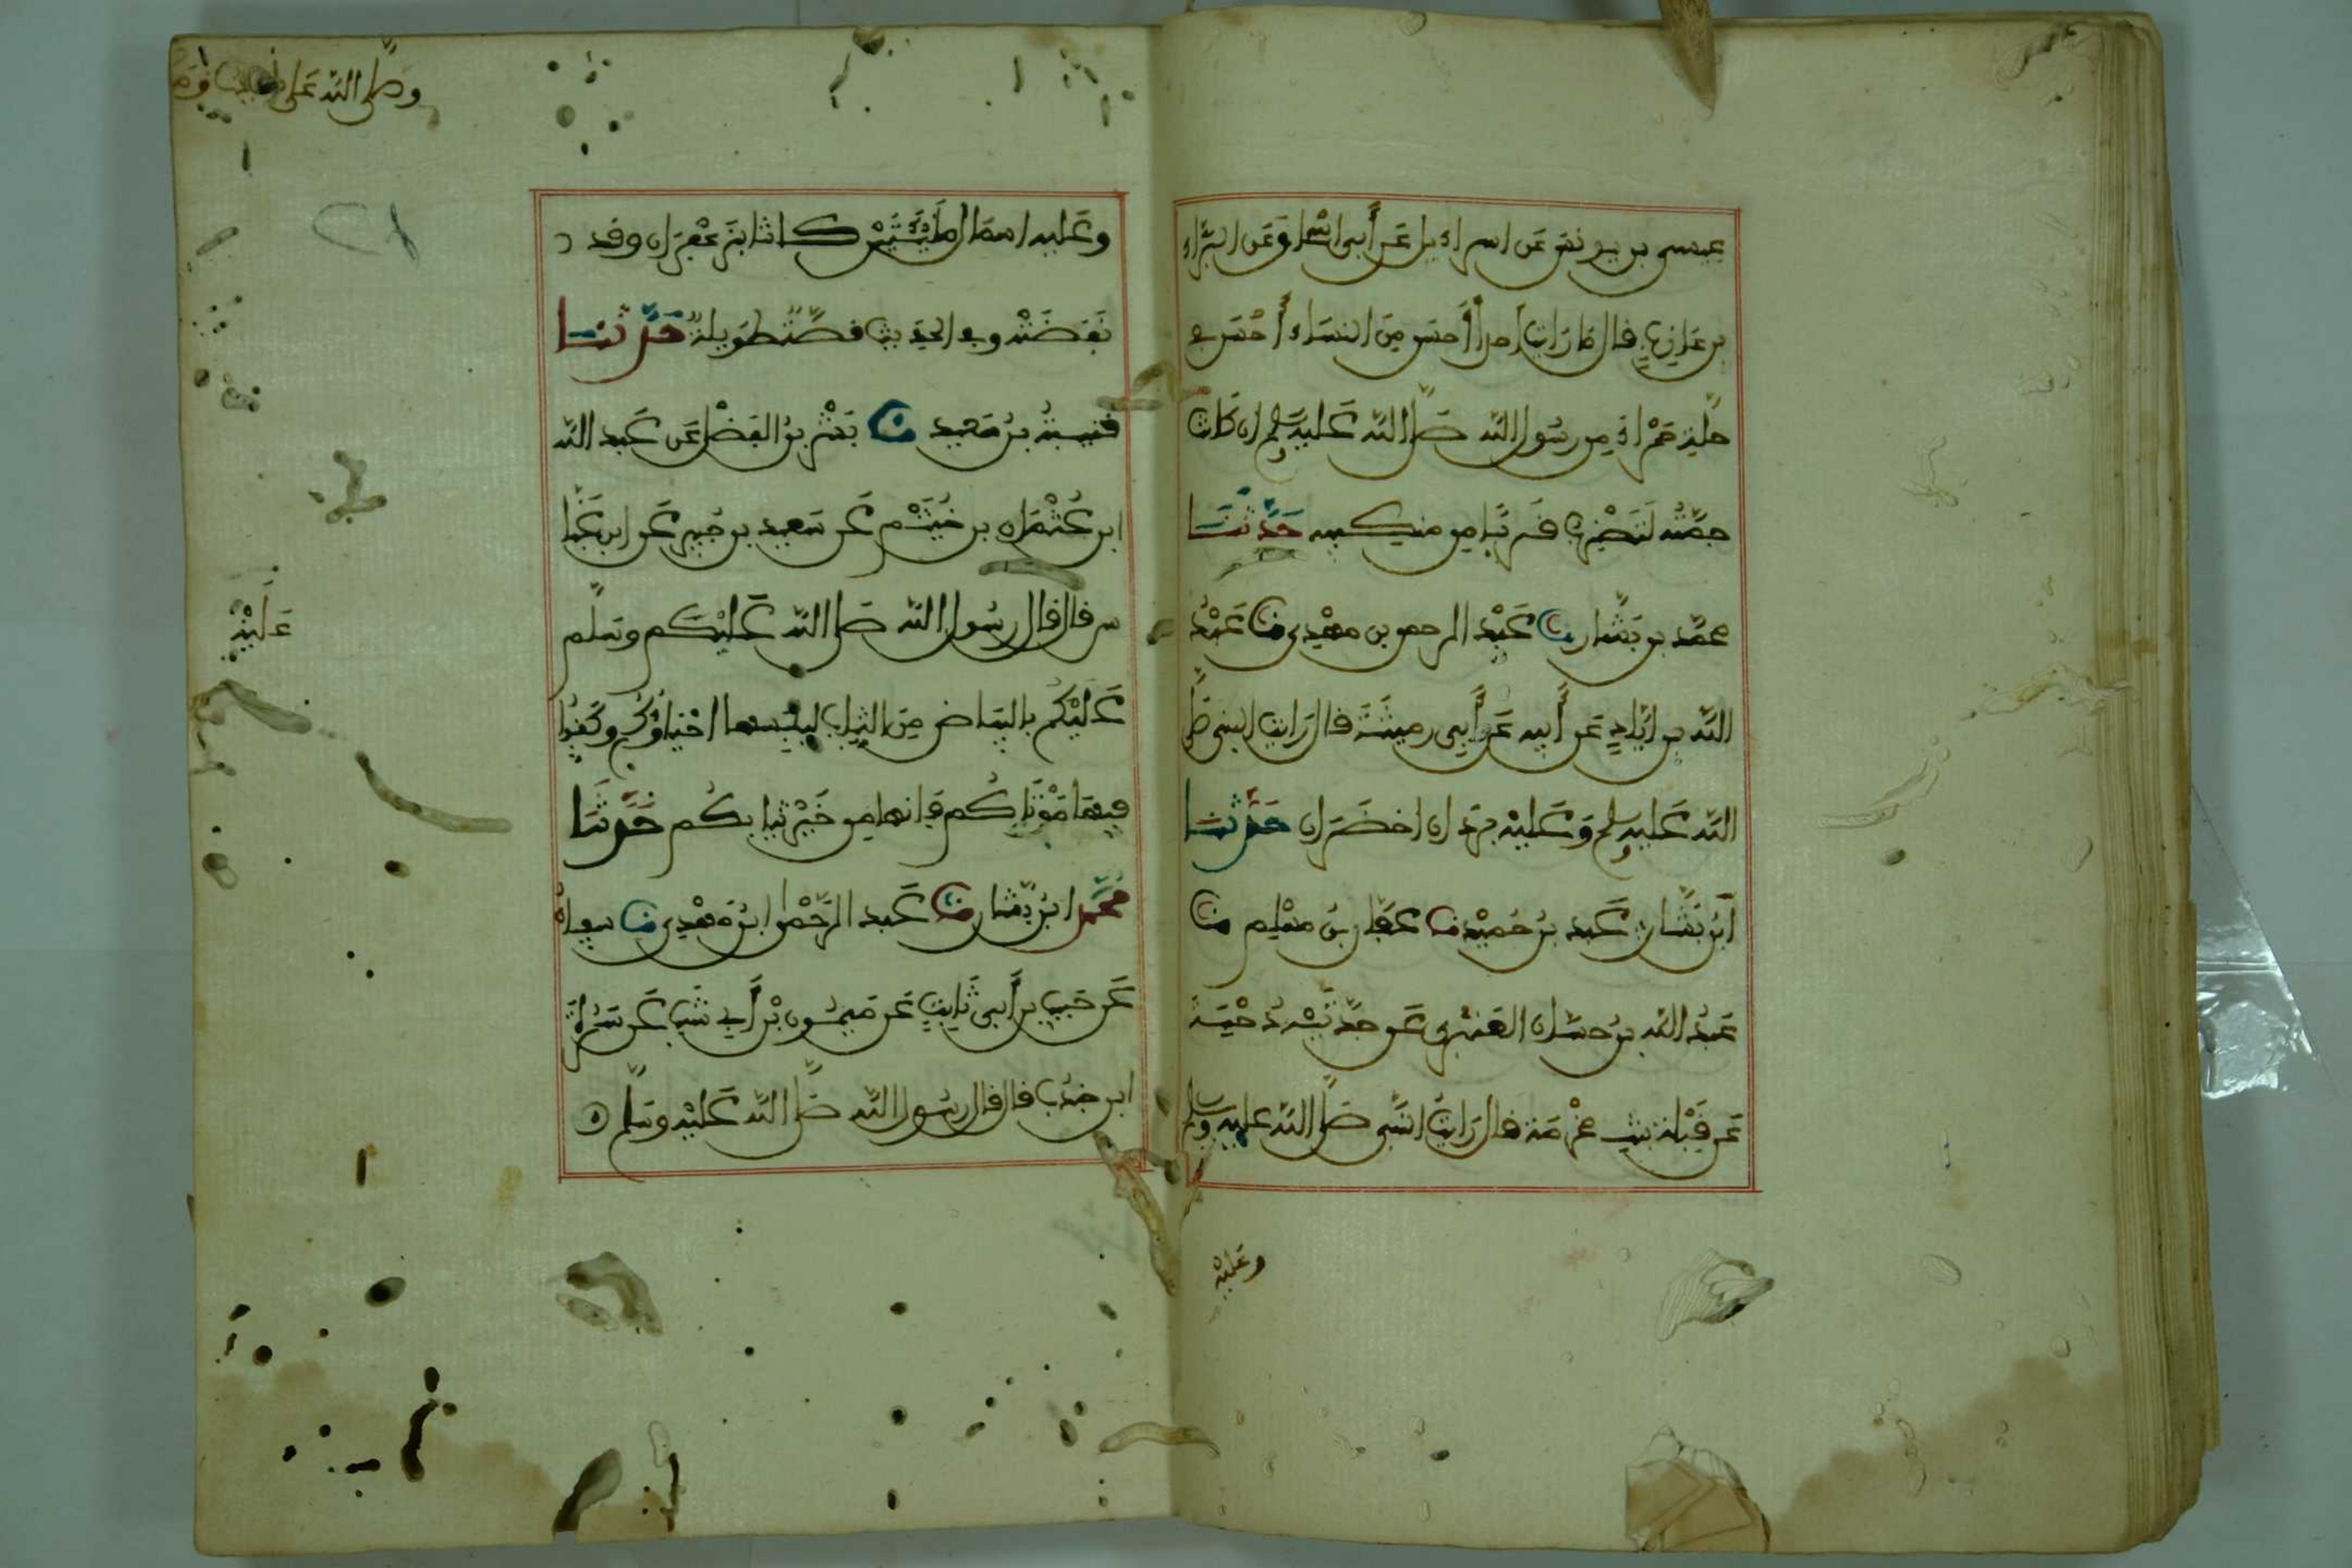 عيسى بن يونس عن اسراءيل عن أبى اسحاق عن البراء
بن عازب قال ما رايت احدا أحسن من النساء أحسن ع
حلة حمراء من رسول الله صلى الله عليه وسلم ان كانت
جمته لتضرب قريبا من منكبيه حدثنا
محمد بن بشار نا عبد الرحمن بن مهدي نا عبيد
الله بن اياد عن أبيه عن أبي رمثة قال رايت النبي صلى
الله عليه وسلم وعليه بردان اخضران حدثنا
ابن بشار عبد بن حميد نا عفان بن مسلم نا
عبد الله بن حسان العنبري عن جدتيه دحيبة
عن قيلة بنت مخرمة قال رايت النبي صلى الله عليه وسلم
وعليه
وصلى الله على
وعليه اسمال مليتين كانتا بزعفران وقد
نفضته وفي الحديث قصة طويلة حدثنا
قتيبة بن سعيد نا بشر بن الفضل عن عبد الله
ابن عثمان بن خيثم عن سعيد بن جبير عن ابن عبا
س قال قال رسول الله صلى الله عليكم وسلم
عليه
عليكم بالبياض من الثياب ليلبسها احياؤكم وكفنوا
فيها موتاكم فانها من خير ثيابكم حدثنا
محمد ابن بشار نا عبد الرحمن ابن مهدي نا سفيان
عن حبيب بن أبي ثابت عن ميمون بن أبي شبيب عن سمرة
ابن جندب قال قال رسول الله صلى الله عليه وسلم